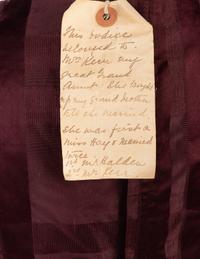 This bodice
belonged to
Mrs Kerr my
great Grand
Aunt. She brought
up my Grand Mother
till she married.
she was first a
Miss Hay & married
twice
1st Mr Halden
2nd Mr Kerr